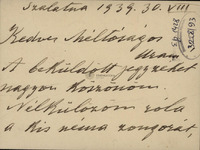 Szalatna 1939. 30. VIII
Kedves Méltóságos
Uram
A beküldött jegyzéket
nagyon köszönöm.
Nélkülözöm róla
a kis néma zongorát,